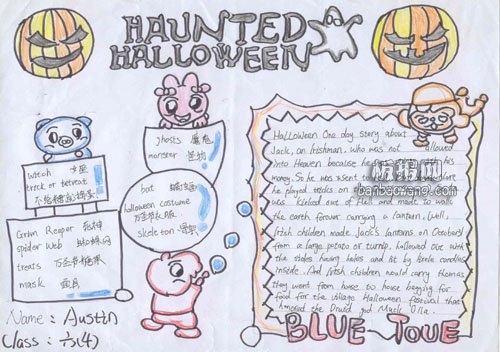 HAUNTED
HALLOWEEN
witch 女巫
trick or retreat
不给糖就捣蛋!
Grim Reaper 死神
spider Web 蜘蛛网
treats 万圣节糖果
mask 面具
ghosts 魔鬼
monster 怪物
bat 蝙蝠
halloween costume
万圣节衣服
skeleton 骨架
Halloween One day story about
Jack, an Irishman, who was not allowed
into Heaven because he his
money. So he was sent to
he played tricks on
was kicked out of Hell and made to walk
the earth forever carrying a lantern. Well,
Irish children made Jack's lanterns on October
from a large potato or turnip, hollowed out with
the sides having holes and lit by little candles
inside. And Irish children would carry them as
they went from house to house begging for
food for the village Halloween festival that
honored the Druid god Muck Olla.
BLUE TOUE
Name: Austin
Class: 六(4)
板报网
banbaowang.com